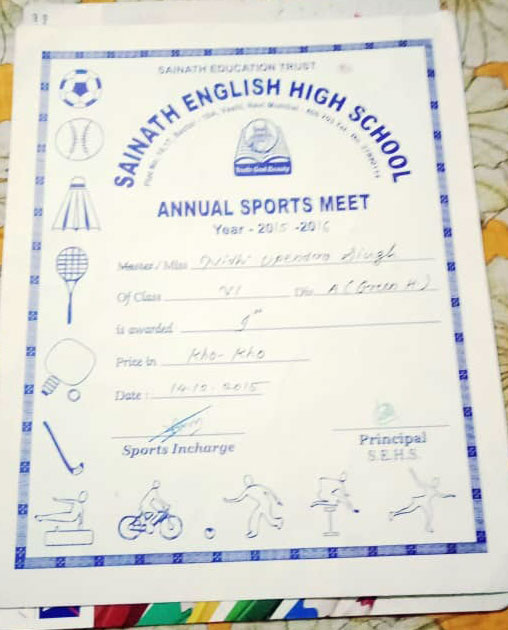 SAINATH EDUCATION TRUST
SAINATH ENGLISH HIGH SCHOOL
Vashi, Navi Mumbai
Truth God Beauty
ANNUAL SPORTS MEET
Year - 2015 -2016
Master / Miss Upendra Singh
Of Class VI Div A (Green H)
is awarded I
Prize in Kho-Kho
Date : 14.10.2015
Sports Incharge
Principal
S.E.H.S.